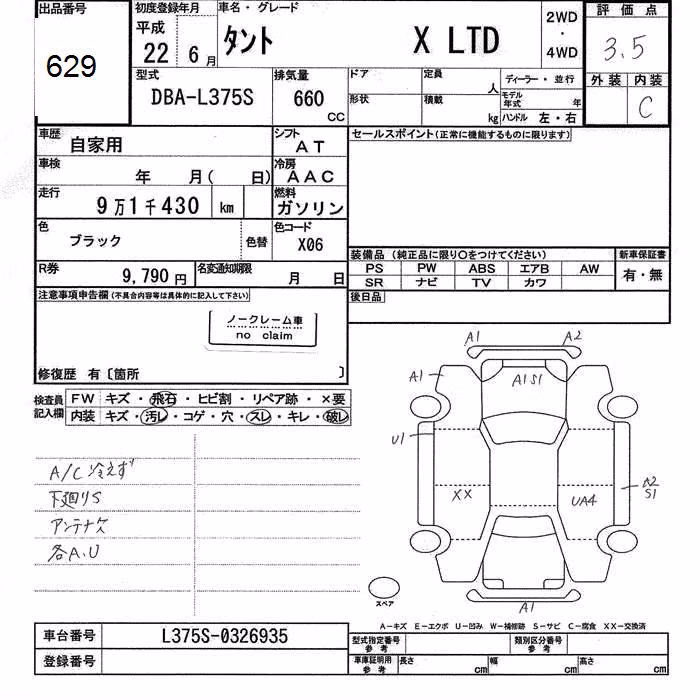 出品番号
629
初度登録年月
平成
22 6月
車名・グレード
タント X LTD
2WD
・
4WD
評価点
3.5
型式
DBA-L375S
排気量
660 CC
ドア
形状
定員
人
積載
kg
ディーラー・並行
モデル年式 年
ハンドル 左・右
外装 内装
C
車歴
自家用
シフト
AT
車検
年 月( 日)
冷房
AAC
走行
9万1千430 km
燃料
ガソリン
色
ブラック
色替
色コード
X06
R券
9,790円
名変通知期限
月 日
セールスポイント(正常に機能するものに限ります)
装備品 (純正品に限り○をつけてください)
PS PW ABS エアB AW
SR ナビ TV カワ
新車保証書
有・無
後日品
注意事項申告欄(不具合内容等は具体的に記入して下さい)
ノークレーム車
no claim
修復歴 有〔箇所 〕
検査員記入欄
FW キズ・飛石・ヒビ割・リペア跡・×要
内装 キズ・汚レ・コゲ・穴・スレ・キレ・破レ
A/C冷えず
下廻りS
アンテナ欠
各A.U
A1 A2
A1
A1S1
U1
XX
UA4
A2
S1
A1
スペア
A−キズ E−エクボ U−凹み W−補修跡 S−サビ C−腐食 XX−交換済
車台番号
L375S-0326935
登録番号
型式指定番号
参考
類別区分番号
参考
車庫証明用
参考
長さ cm
幅 cm
高さ cm